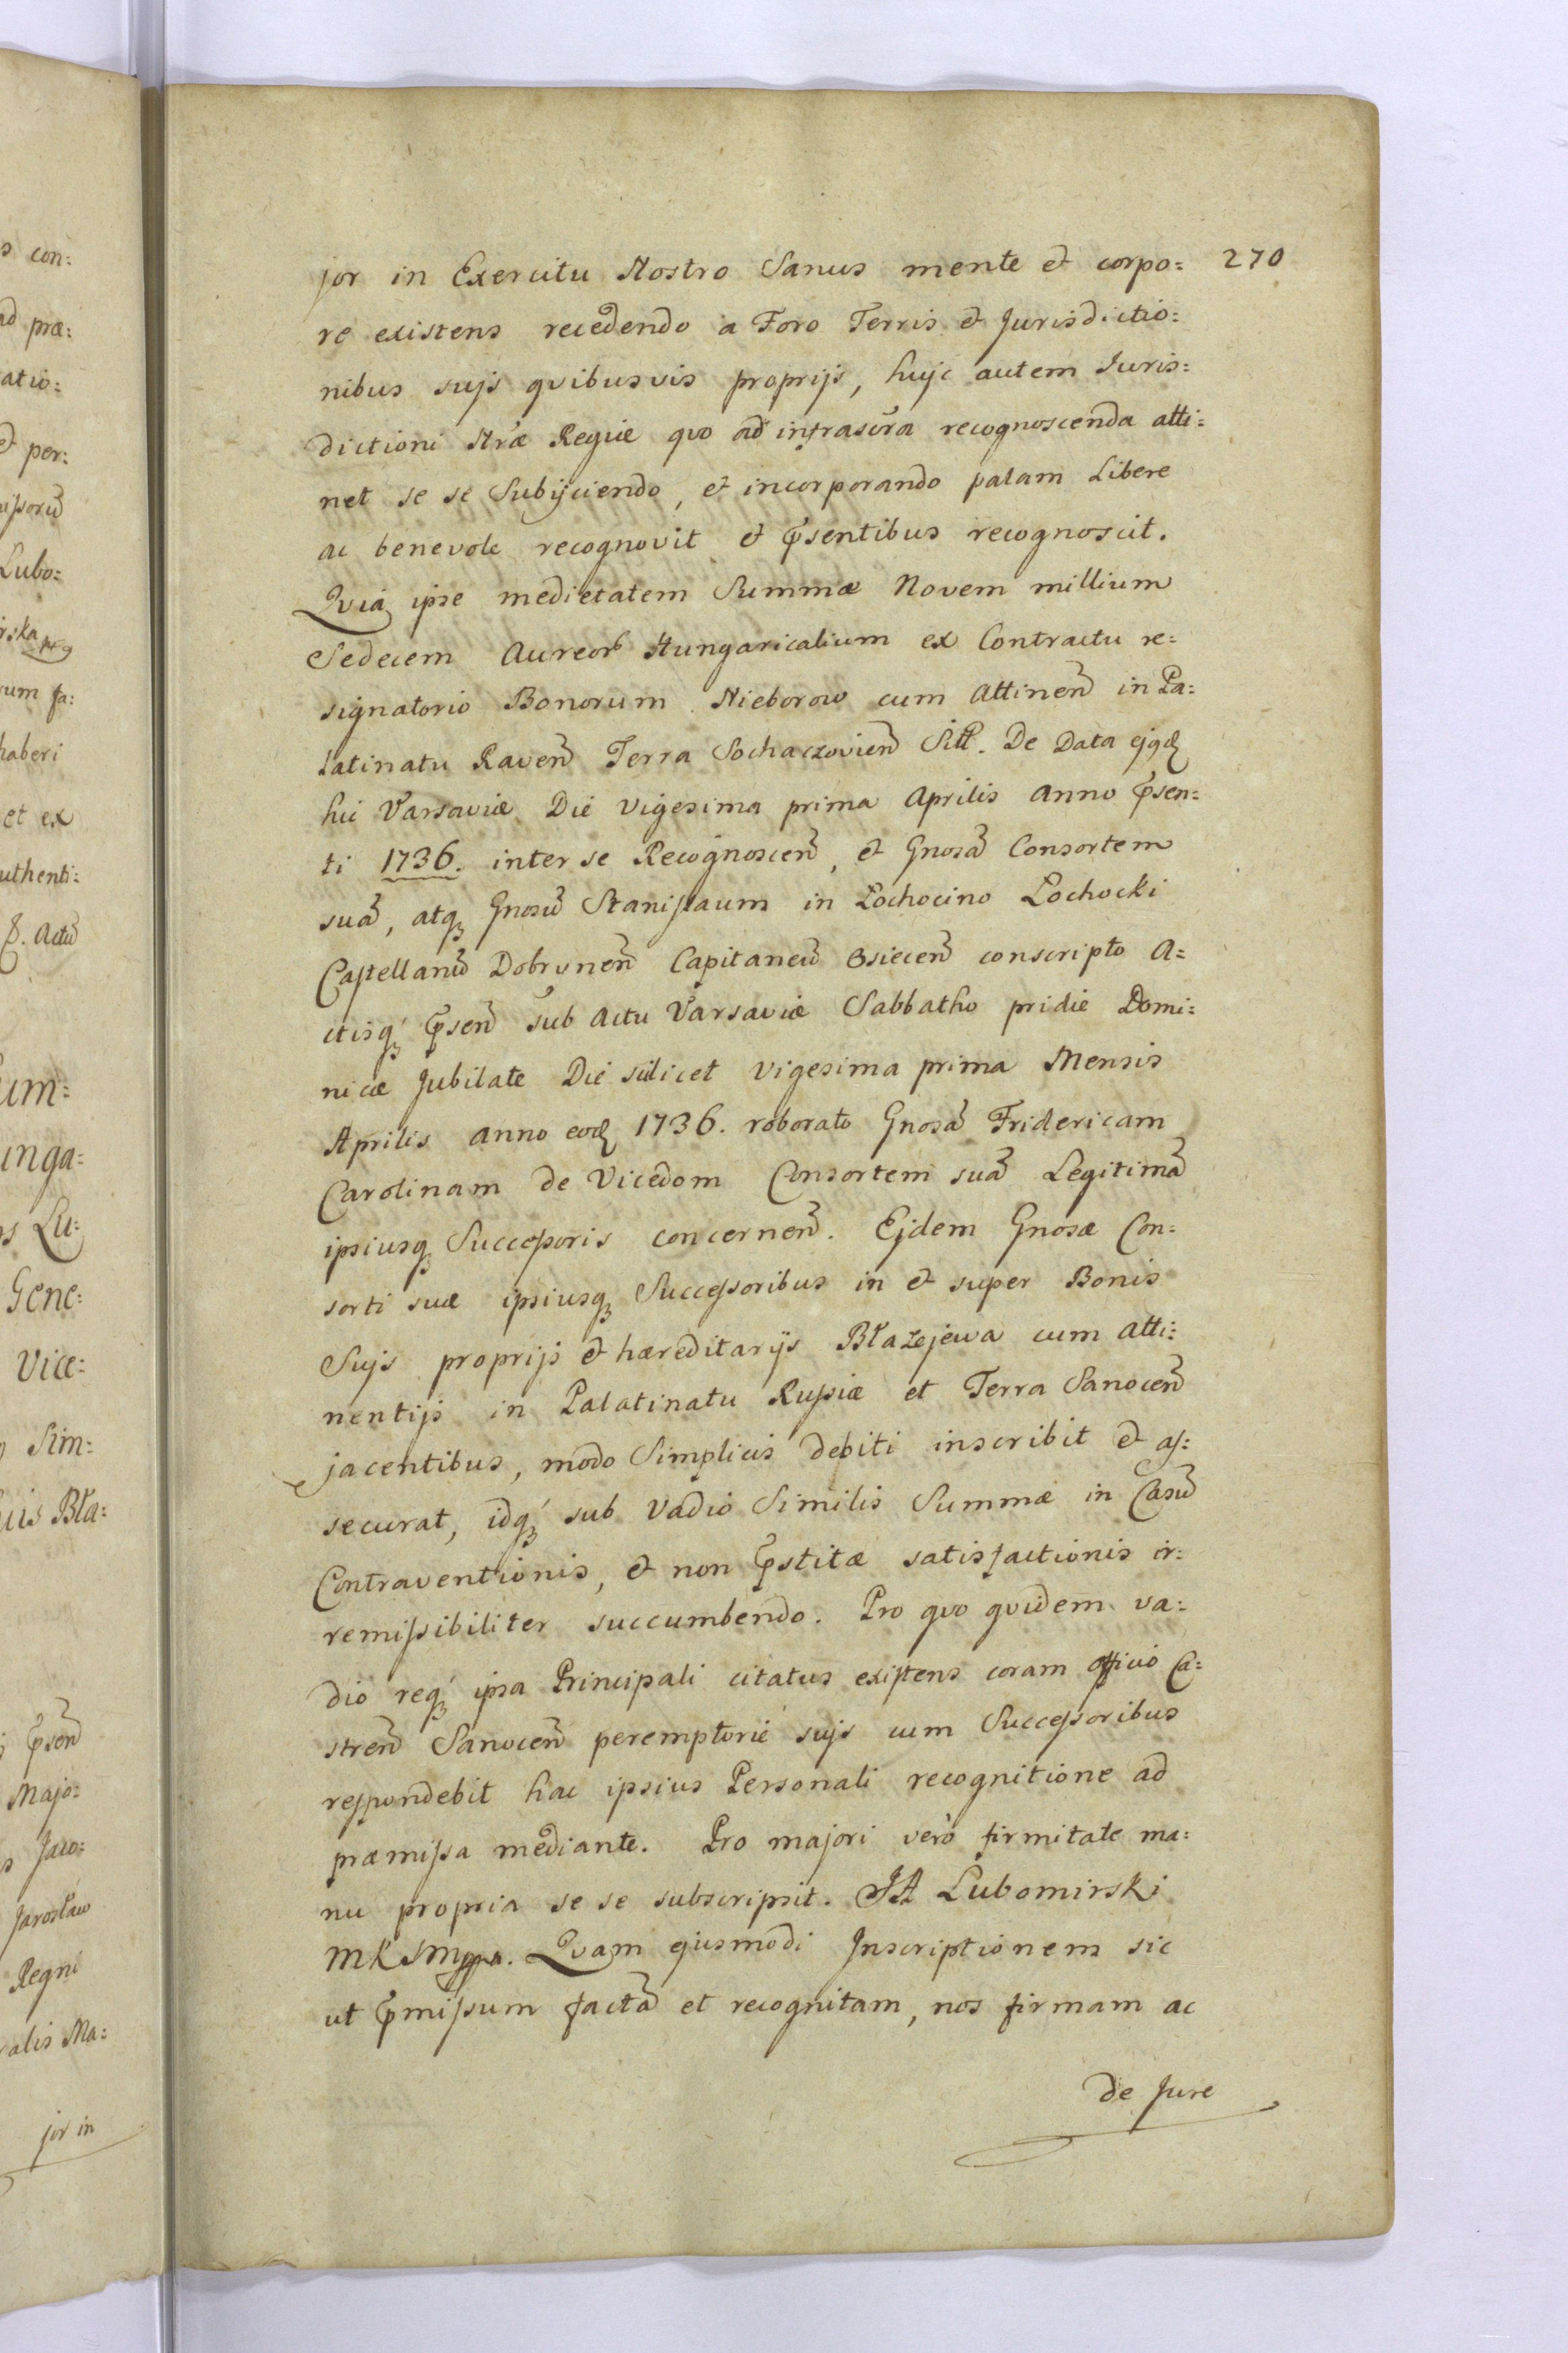 jor in Exercitu Nostro Sanus mente et corpo: 270
re existens recedendo a Foro Terris et Jurisdictio:
nibus sujs qvibusvis proprijs, hujc autem Juris:
dictioni Nræ Regiæ qvo ad infrascra recognoscenda atti:
net se se Subijciendo, et incorporando palam Libere
ac benevole recognovit et p̃sentibus recognoscit.
Qvia ipse medietatem Summæ Novem millium
Sedecem Aureor Hungaricalium ex Contractu re:
signatorio Bonorum Nieborow cum Attinen̄ in Pa:
latinatu Raven̄ Terra Sochaczovien̄ Sitt. De Data ejqd
hic Varsaviæ Die vigesima prima Aprilis Anno p̃sen:
ti 1736. inter se Recognoscen̄, et Gnosā Consortem
suā, atq Gnosū Stanislaum in Lochocino Lochocki
Castellanū Dobrynen̄ Capitaneū Osiecen̄ conscripto A:
ctisq́ p̃sen̄ sub Actu Varsaviæ Sabbatho pridie Domi:
nicæ Jubilate Die scilicet vigesima prima Mensis
Aprilis anno eod 1736. roborato Gnosā Fridericam
Carolinam de Vicedom Consortem suā Legitimā
ipsiusq Successoris concernen̄. Ejdem Gnosæ Con:
sorti suæ ipsiusq Successoribus in et super Bonis
Sujs proprijs et hæreditarijs Błażejewa cum atti:
nentijs in Palatinatu Russiæ et Terra Sanocen̄
jacentibus, modo Simplicis debiti inscribit et as:
securat, idq́ sub Vadio Similis Summæ in Casū
Contraventionis, et non p̃stitæ satisfactionis ir:
remissibiliter succumbendo. Pro qvo qvidem va:
dio req́ ipsa Principali citatus existens coram officio Ca:
stren̄ Sanocen̄ peremptorie sujs cum Successoribus
respondebit hac ipsius Personali recognitione ad
præmissa mediante. Pro majori vero firmitate ma:
nu propria se se subscripsit. JA Lubomirski
MKSMppa. Qvam ejusmodi Inscriptionem sic
ut p̃missum factā et recognitam, nos firmam ac
de Jure